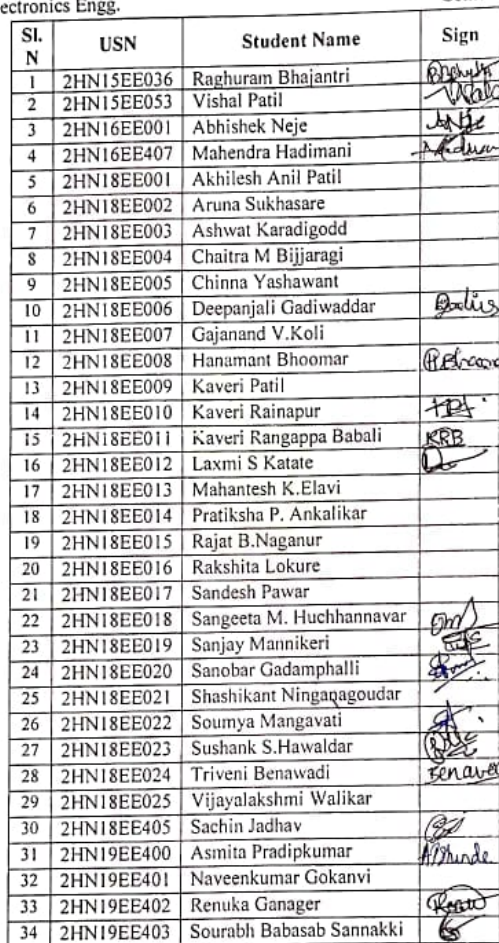 ectronics Engg.
Sl. N USN Student Name Sign
1 2HN15EE036 Raghuram Bhajantri
2 2HN15EE053 Vishal Patil
3 2HN16EE001 Abhishek Neje
4 2HN16EE407 Mahendra Hadimani
5 2HN18EE001 Akhilesh Anil Patil
6 2HN18EE002 Aruna Sukhasare
7 2HN18EE003 Ashwat Karadigodd
8 2HN18EE004 Chaitra M Bijjaragi
9 2HN18EE005 Chinna Yashawant
10 2HN18EE006 Deepanjali Gadiwaddar
11 2HN18EE007 Gajanand V.Koli
12 2HN18EE008 Hanamant Bhoomar
13 2HN18EE009 Kaveri Patil
14 2HN18EE010 Kaveri Rainapur
15 2HN18EE011 Kaveri Rangappa Babali KRB
16 2HN18EE012 Laxmi S Katate
17 2HN18EE013 Mahantesh K.Elavi
18 2HN18EE014 Pratiksha P. Ankalikar
19 2HN18EE015 Rajat B.Naganur
20 2HN18EE016 Rakshita Lokure
21 2HN18EE017 Sandesh Pawar
22 2HN18EE018 Sangeeta M. Huchhannavar
23 2HN18EE019 Sanjay Mannikeri
24 2HN18EE020 Sanobar Gadamphalli
25 2HN18EE021 Shashikant Ninganagoudar
26 2HN18EE022 Soumya Mangavati
27 2HN18EE023 Sushank S.Hawaldar
28 2HN18EE024 Triveni Benawadi
29 2HN18EE025 Vijayalakshmi Walikar
30 2HN18EE405 Sachin Jadhav
31 2HN19EE400 Asmita Pradipkumar
32 2HN19EE401 Naveenkumar Gokanvi
33 2HN19EE402 Renuka Ganager
34 2HN19EE403 Sourabh Babasab Sannakki